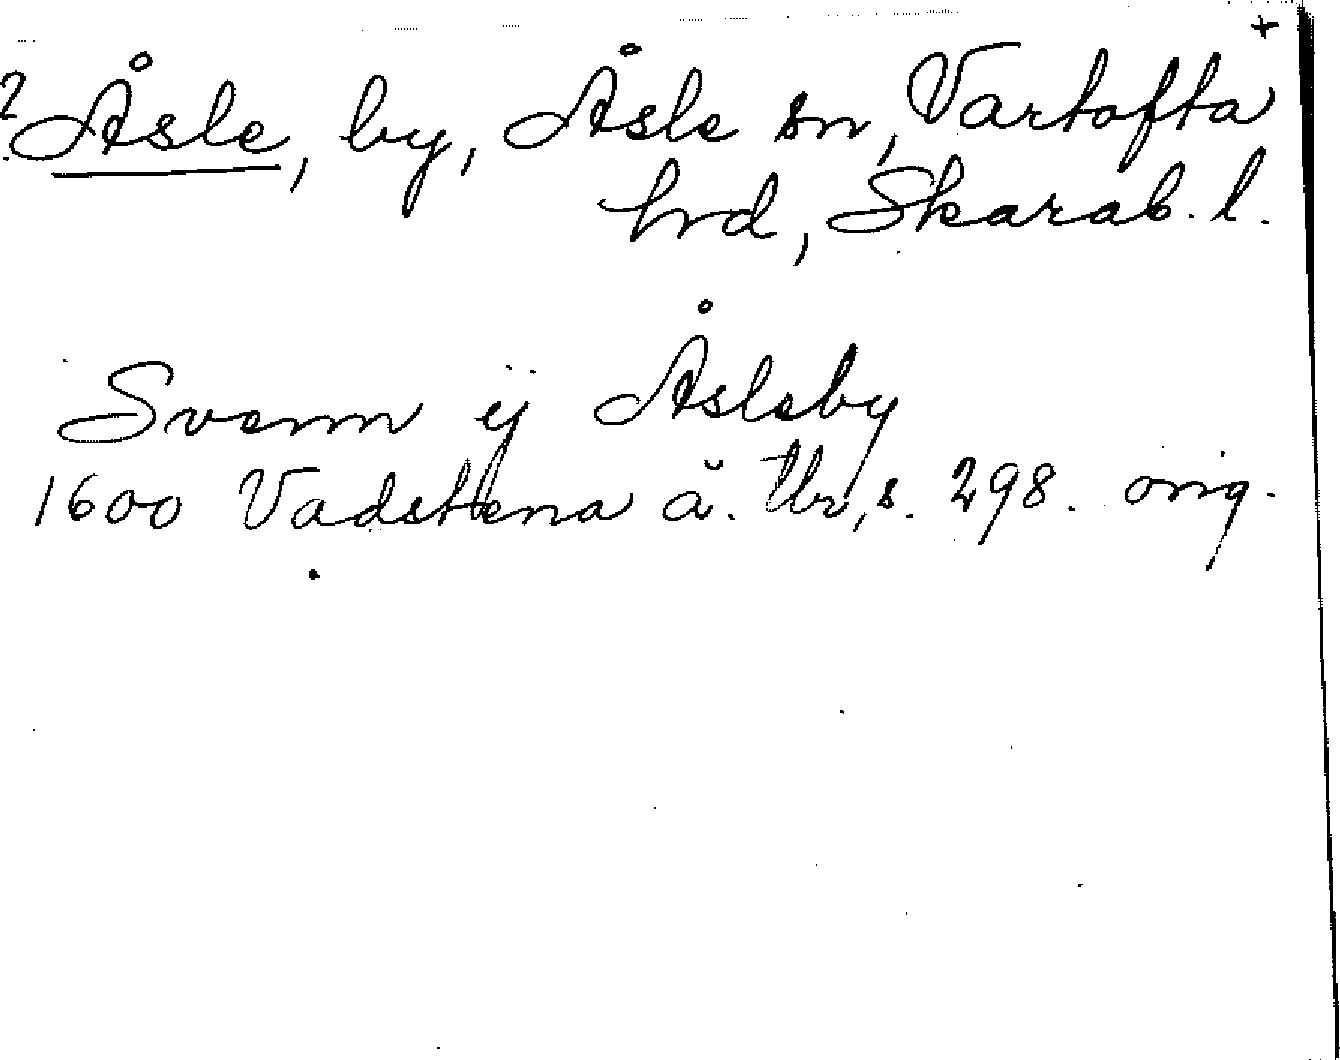 +
? Åsle, by, Åsle sn, Vartofta
hrd, Skarab. l.
Svenn ÿ Åsleby
1600 Vadstena ä. Tb, s. 298. orig.